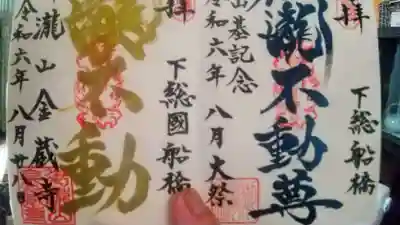 拝
下総船橋
瀧不動尊
基記念
令和六年 八月大祭
拝
下総國船橋
不動
瀧山金蔵寺
令和六年 八月廿八日